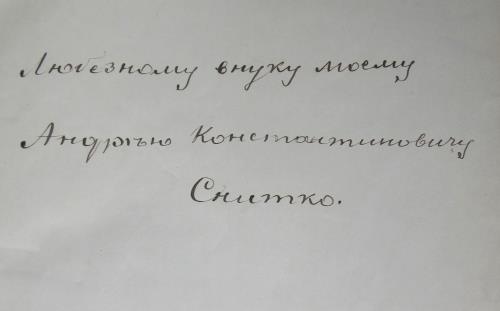 Любезному внуку моему
Андрѣю Константиновичу
Снитко.